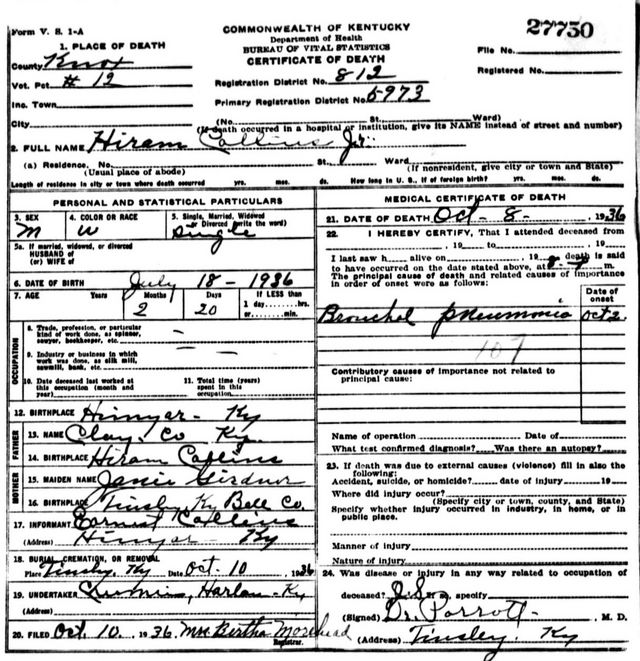 Form V. S. 1-A
COMMONWEALTH OF KENTUCKY
Department of Health
BUREAU OF VITAL STATISTICS
CERTIFICATE OF DEATH
27750
File No.
Registered No.
1. PLACE OF DEATH
County Knox
Vot. Pct # 12
Inc. Town
City
Registration District No. 812
Primary Registration District No. 5973
(No. St. Ward)
(If death occurred in a hospital or institution, give its NAME instead of street and number)
2. FULL NAME Hiram Collins Jr.
(a) Residence. No. St. Ward
(Usual place of abode) (If nonresident, give city or town and State)
Length of residence in city or town where death occurred yrs. mos. ds. How long in U. S., if of foreign birth? yrs. mos. ds.
PERSONAL AND STATISTICAL PARTICULARS
3. SEX M
4. COLOR OR RACE W
5. Single, Married, Widowed or Divorced (write the word) Single
5a. If married, widowed, or divorced
HUSBAND of
(or) WIFE of
6. DATE OF BIRTH July 18 - 1936
7. AGE Years Months Days If LESS than
2 20 1 day hrs.
or min.
OCCUPATION
8. Trade, profession, or particular
kind of work done, as spinner,
sawyer, bookkeeper, etc.
9. Industry or business in which
work was done, as silk mill,
sawmill, bank, etc.
10. Date deceased last worked at
this occupation (month and
year)
11. Total time (years)
spent in this
occupation
12. BIRTHPLACE Himyar - Ky
FATHER
13. NAME Clay. Co Ky.
14. BIRTHPLACE Hiram Collins
MOTHER
15. MAIDEN NAME Janie Girdner
16. BIRTHPLACE Tinsley Ky Bell Co.
17. INFORMANT Earnest Collins
(Address) Himyar - Ky
18. BURIAL, CREMATION, OR REMOVAL
Place Tinsley, Ky Date Oct. 10 1936
19. UNDERTAKER Harlan - Ky
(Address)
20. FILED Oct. 10. 1936 Mrs Bertha Morehead
Registrar.
MEDICAL CERTIFICATE OF DEATH
21. DATE OF DEATH Oct - 8 - 1936
22. I HEREBY CERTIFY, That I attended deceased from
, 19 to , 19
I last saw h alive on , 19 death is said
to have occurred on the date stated above, at m.
The principal cause of death and related causes of importance
in order of onset were as follows:
Date of
onset
Bronchal pneumonia Oct 2
107
Contributory causes of importance not related to
principal cause:
Name of operation Date of
What test confirmed diagnosis? Was there an autopsy?
23. If death was due to external causes (violence) fill in also the
following:
Accident, suicide, or homicide? date of injury 19
Where did injury occur?
(Specify city or town, county, and State)
Specify whether injury occurred in industry, in home, or in
public place.
Manner of injury
Nature of injury
24. Was disease or injury in any way related to occupation of
deceased? If so, specify
(Signed) Dr. Parrott - M. D.
(Address) Tinsley, Ky